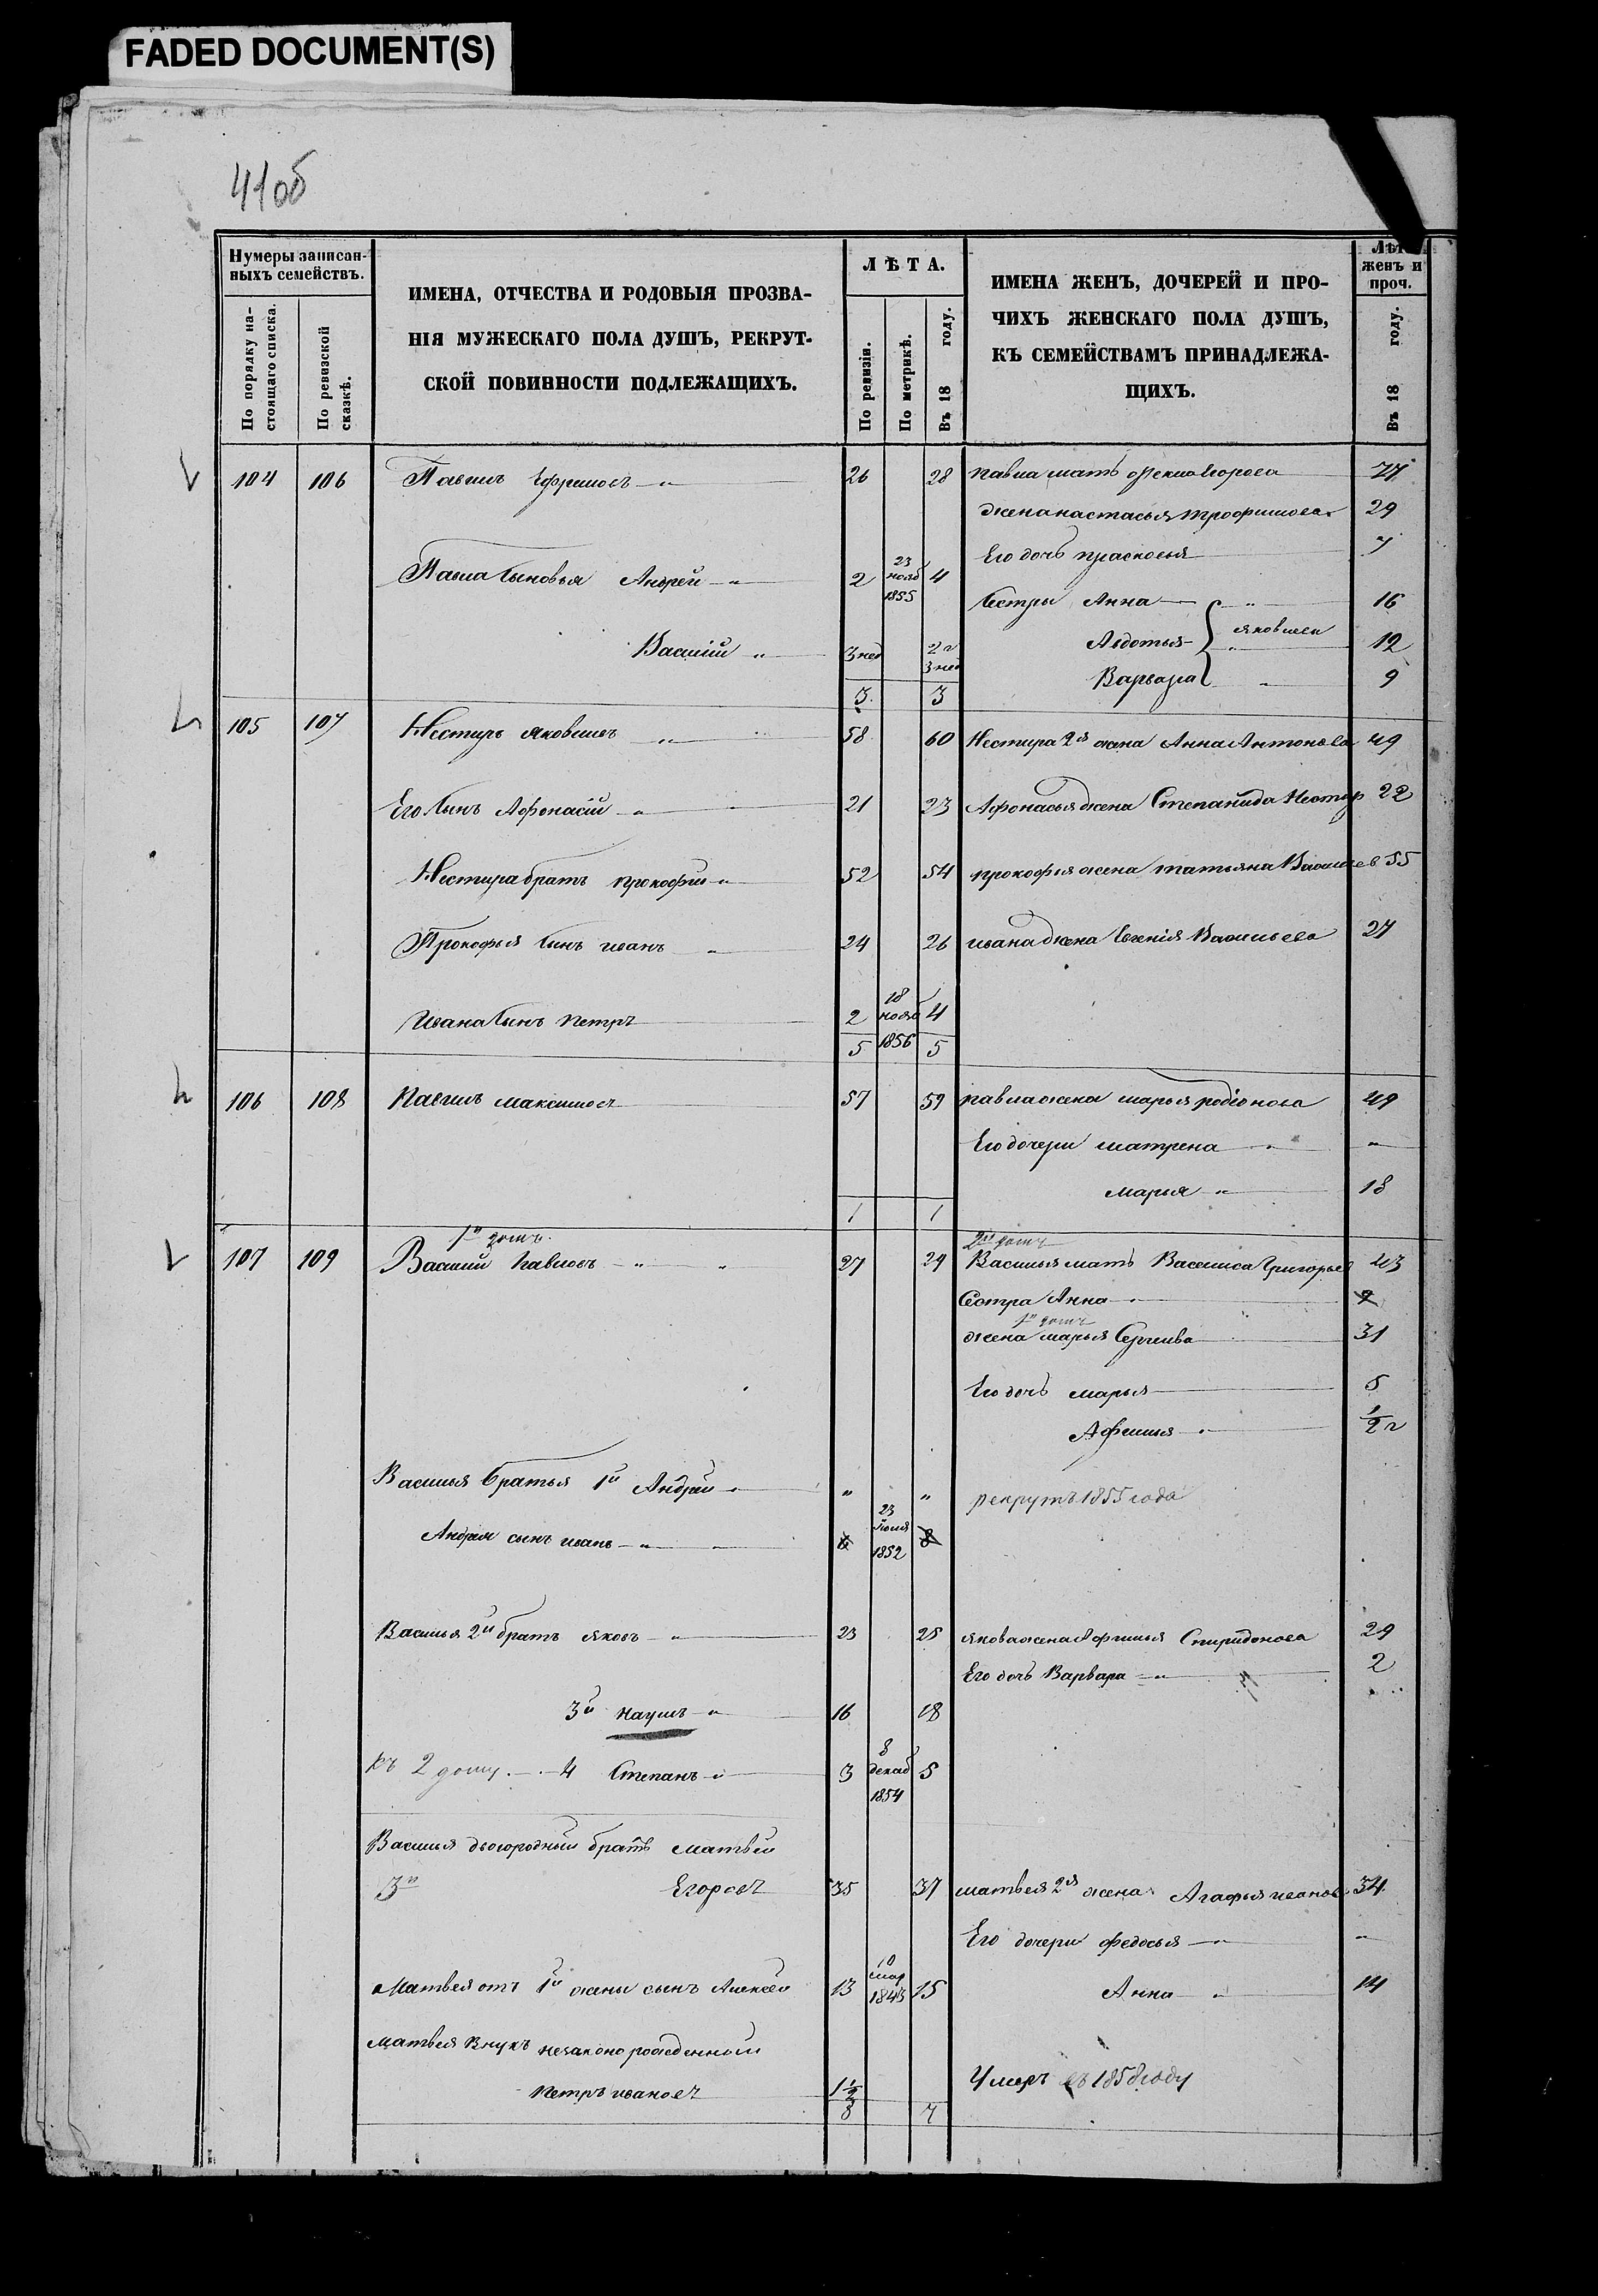 FADED DOCUMENT(S)
41об
Нумеры записан-
ныхъ семействъ.
По порядку на-
стоящаго списка.
По ревизской
сказкѣ.
ИМЕНА, ОТЧЕСТВА И РОДОВЫЯ ПРОЗВА-
НІЯ МУЖЕСКАГО ПОЛА ДУШЪ, РЕКРУТ-
СКОЙ ПОВИННОСТИ ПОДЛЕЖАЩИХЪ.
ЛѢТА.
По ревизіи.
По метрикѣ.
Въ 18 году.
ИМЕНА ЖЕНЪ, ДОЧЕРЕЙ И ПРО-
ЧИХЪ ЖЕНСКАГО ПОЛА ДУШЪ,
КЪ СЕМЕЙСТВАМЪ ПРИНАДЛЕЖА-
ЩИХЪ.
Лѣт
женъ и
проч.
Въ 18 году.
104 106 Павилъ Ефимовъ 26 28 павла мать Фекла Егорова 77
жена настасья трофимова 29
Его дочь прасковья 7
Павла Сыновья Андрей 2 23 нояб 1855 4
Сестры Анна 16
Авдотья яковлевы 12
Василій 3 нед 2 г 3 нед
Варвара 9
3 3
105 107 Нестиръ яковлевъ 58 60 Нестира 2я жена Анна Антонова 49
Его Сынъ Афонасій 21 23 Афонасья жена Степанида Нестир 22
Нестира братъ прокофій 52 54 прокофья жена татьяна Васильев 55
Прокофья Сынъ иванъ 24 26 ивана жена Евгенія Васильева 27
Ивана Сынъ петръ 2 18 нояб 1856 4
5 5
106 108 Павилъ максимовъ 57 59 павла жена марья родіонова 49
Его дочери матрена "
марья 18
1 1
1й домъ. 2й домъ
107 109 Василій павловъ 27 29 Василья мать Василиса Григорьев 43
Сестра Анна 9
1й домъ
жена марья Сергеива 31
Его дочь марья 5
Афимья 1/2 г
Василья братья 1й Андрей " " рекрутъ 1855 года
Андрея сынъ иванъ 6 23 Июля 1852 8
Василья 2й братъ яковъ 23 25 якова жена Афимья Спиридонова 29
Его дочь Варвара 2
3й наумъ 16 18
къ 2 дому 4 Степанъ 3 8 декаб 1854 5
Василья двоюродный братъ матвей
3й Егоровъ 35 37 матвея 2я жена Агафья иванов 34
Его дочери федосья "
Матвея отъ 1й жены сынъ Алексей 13 10 мар 1843 15 Анна 14
матвея Внукъ незаконорожденный
петръ ивановъ 1 1/2 Умеръ въ 1858 году
8 7